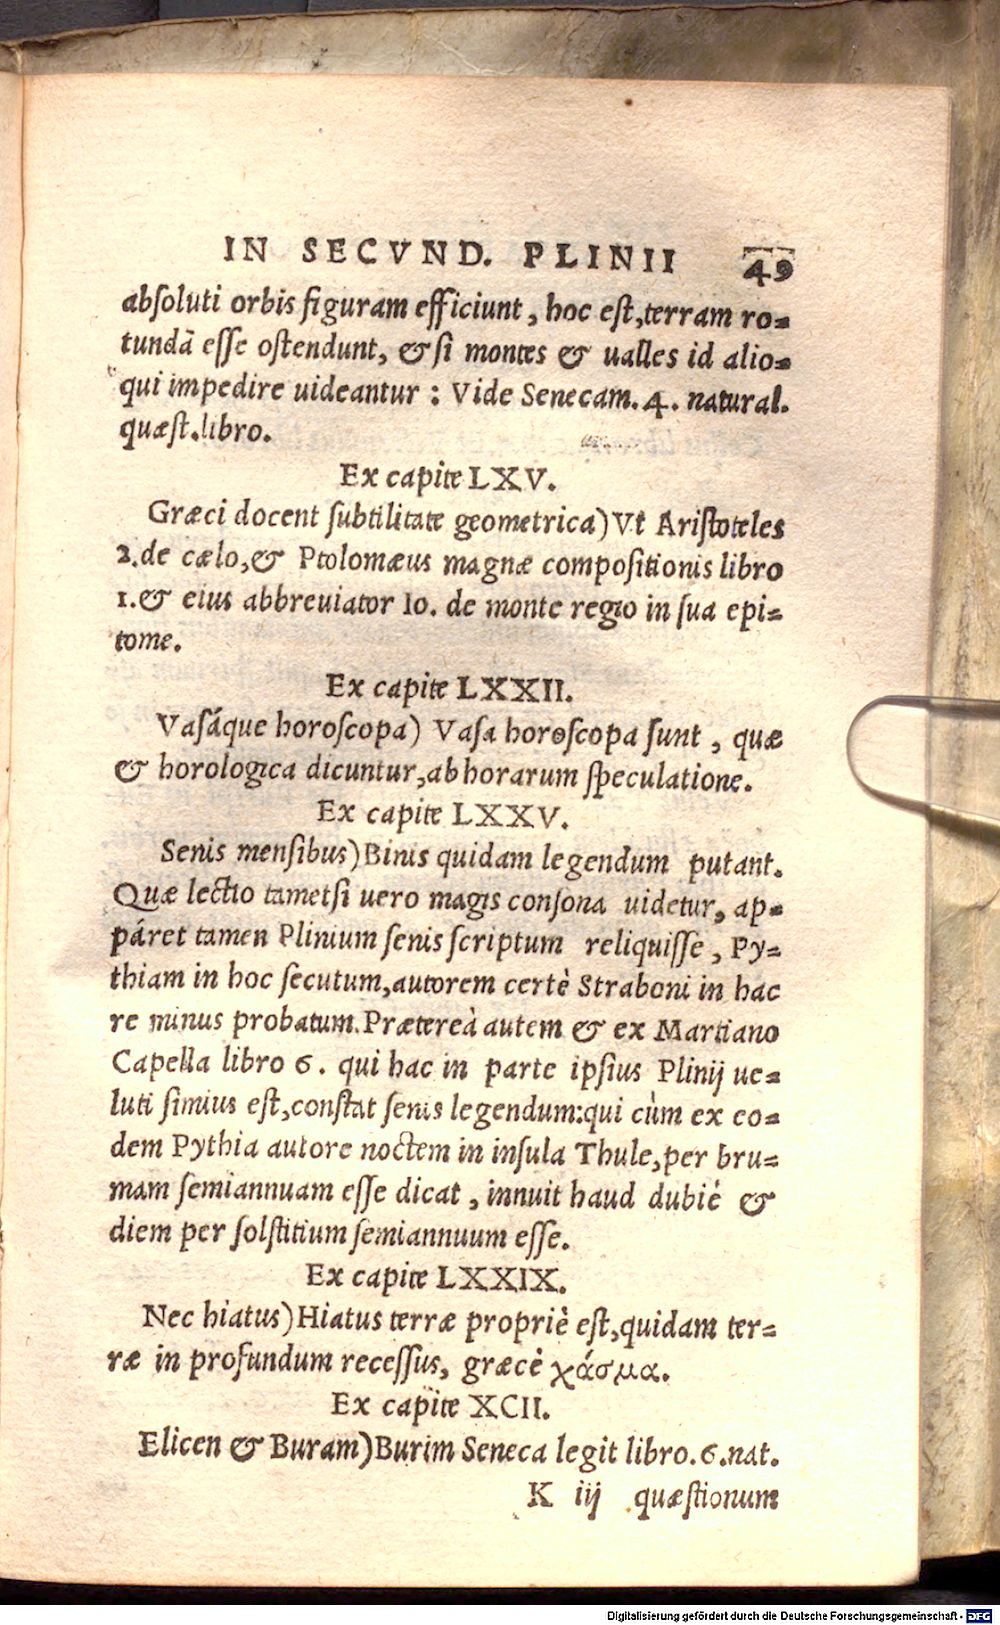 IN SECVND. PLINII 49
absoluti orbis figuram efficiunt, hoc est, terram ro-
tundã esse ostendunt, & si montes & ualles id alio-
qui impedire uideantur : Vide Senecam. 4. natural.
quæst. libro.
Ex capite LXV.
Græci docent subtilitate geometrica) Vt Aristoteles
2. de cælo, & Ptolomæus magnæ compositionis libro
1. & eius abbreuiator Io. de monte regio in sua epi-
tome.
Ex capite LXXII.
Vasáque horoscopa) Vasa horoscopa sunt, quæ
& horologica dicuntur, ab horarum speculatione.
Ex capite LXXV.
Senis mensibus) Binis quidam legendum putant.
Quæ lectio tametsi uero magis consona uidetur, ap-
páret tamen Plinium senis scriptum reliquisse, Py-
thiam in hoc secutum, autorem certè Straboni in hac
re minus probatum. Prætereà autem & ex Martiano
Capella libro 6. qui hac in parte ipsius Plinij ue-
luti simius est, constat senis legendum: qui cùm ex eo-
dem Pythia autore noctem in insula Thule, per bru-
mam semiannuam esse dicat, innuit haud dubiè &
diem per solstitium semiannuum esse.
Ex capite LXXIX.
Nec hiatus) Hiatus terræ propriè est, quidam ter-
ræ in profundum recessus, græcè χάσμα.
Ex capite XCII.
Elicen & Buram) Burim Seneca legit libro. 6. nat.
K iij quæstionum
Digitalisierung gefördert durch die Deutsche Forschungsgemeinschaft - DFG